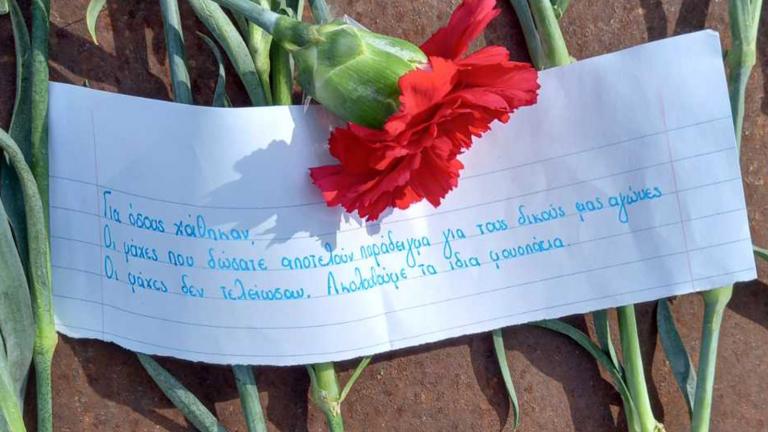 Για όσους χάθηκαν.
Οι μάχες που δώσατε αποτελούν παράδειγμα για τους δικούς μας αγώνες
Οι μάχες δεν τελείωσαν. Ακολαθούμε τα ίδια μουοπάτια.